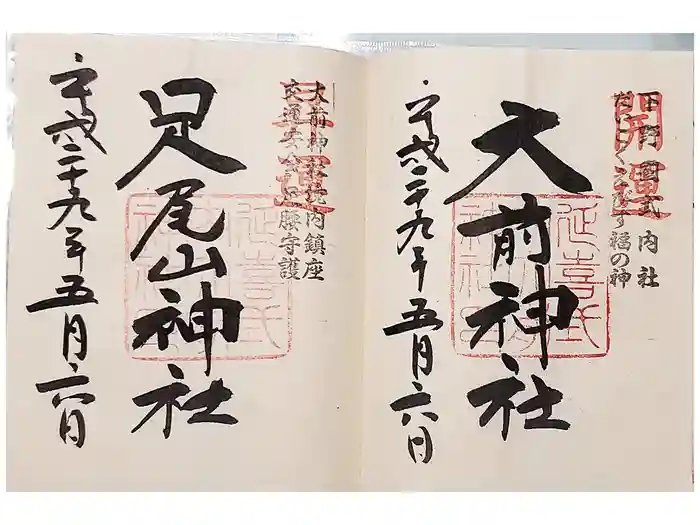 開運
下野國式内社
だいこくえびす福の神
大前神社
平成二十九年五月六日
大前神社境内鎮座
交通安全足腰守護
足尾山神社
平成二十九年五月六日